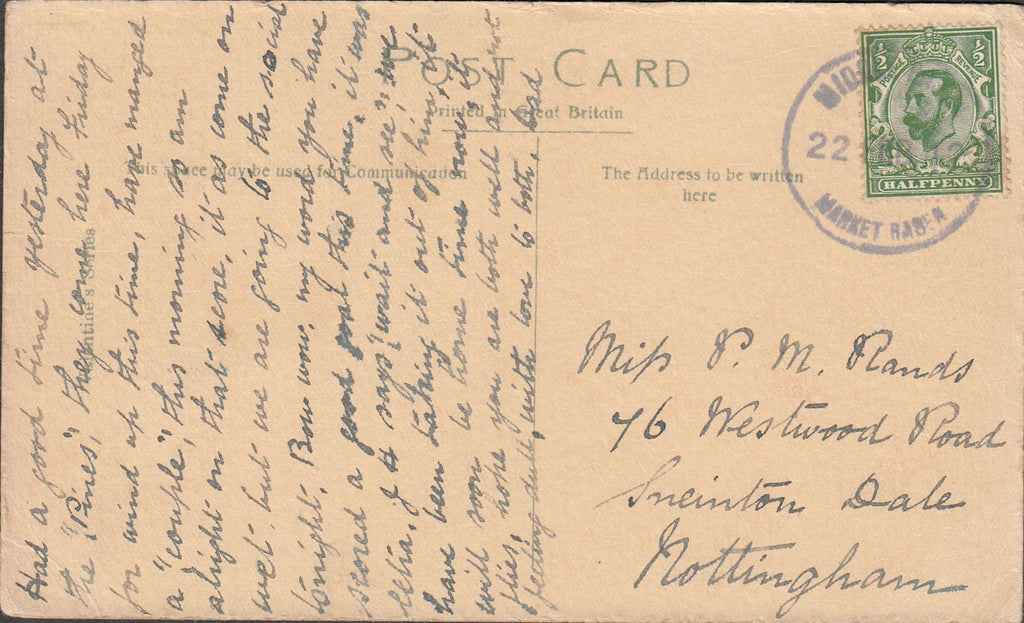 POST CARD
Printed in Great Britain
This space may be used for Communication
The Address to be written
here
Had a good time yesterday at
the "Pines," they come here Friday
for wind up this time, have manged
a "couple", this morning so am
alright on that score, it as come on
wet, but we are going to the social
tonight. Bow wow, my word you have
scored a good goal this time, it was
extra, J H says "wait and see", we
have been taking it out of him, it
will soon be home time now, it
flies, hope you are both well & not
feeling dull, with love to both, Dad
Miss P. M. Rands
76 Westwood Road
Sneinton Dale
Nottingham
1/2 1/2
POSTAGE REVENUE
HALFPENNY
22
MARKET RASEN